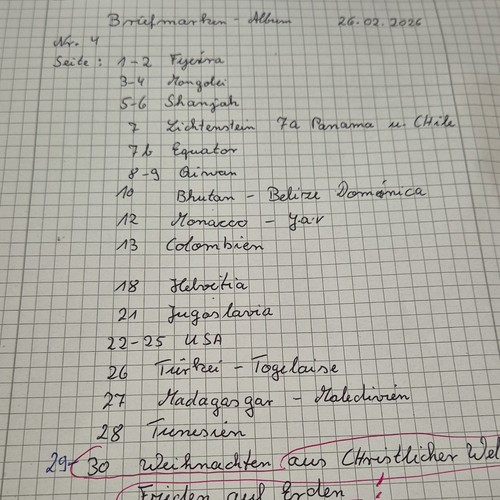 Briefmarken - Album 26.02.2026
Nr. 4
Seite : 1-2 Fujeira
3-4 Mongolei
5-6 Shanjah
7 Lichtenstein 7a Panama u. CHile
7b Equator
8-9 Qiwan
10 Bhutan - Belize Dománica
12 Monacco - y.a.r
13 Colombien
18 Helvetia
21 Jugoslavia
22-25 USA
26 Türkei - Togolaise
27 Madagasgar - Maledivién
28 Tunesien
29-30 Weihnachten (aus CHristlicher Wel
Frieden auf Erden !